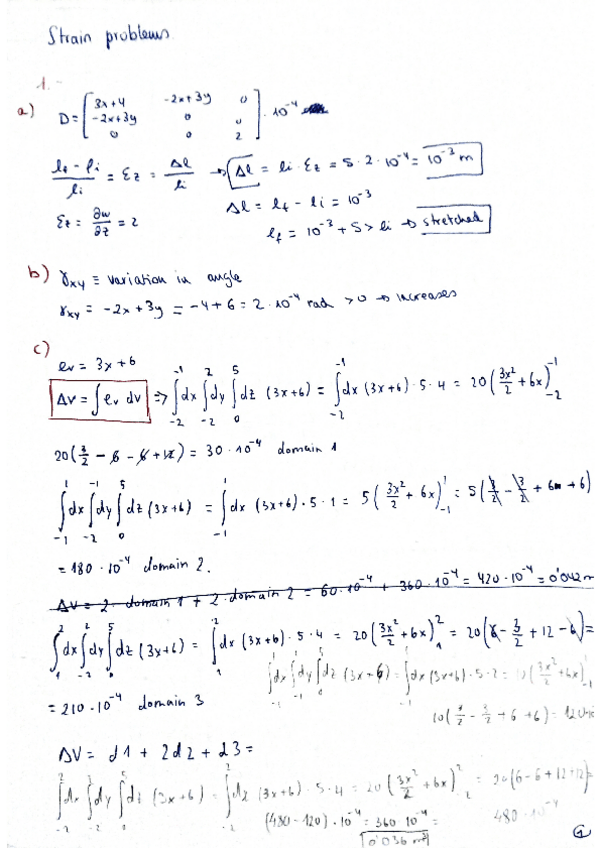 Strain problems
1.-
a) D = [ 3x+4 -2x+3y 0
-2x+3y 0 0
0 0 2 ] · 10^-4
(lf - li)/li = εz = Δl/li → Δl = li · εz = 5 · 2 · 10^-4 = 10^-3 m
εz = ∂w/∂z = 2
Δl = lf - li = 10^-3
lf = 10^-3 + 5 > li → stretched
b) γxy ≡ variation in angle
γxy = -2x + 3y = -4 + 6 = 2 · 10^-4 rad > 0 → increases
c)
ev = 3x + 6
ΔV = ∫ ev dv ⇒ ∫_{-2}^{-1} dx ∫_{-2}^{2} dy ∫_{0}^{5} dz (3x+6) = ∫_{-2}^{-1} dx (3x+6) · 5 · 4 = 20 (3x²/2 + 6x)_{-2}^{-1}
20 (3/2 - 6 - 6 + 12) = 30 · 10^-4 domain 1
∫_{-1}^{1} dx ∫_{-2}^{-1} dy ∫_{0}^{5} dz (3x+6) = ∫_{-1}^{1} dx (3x+6) · 5 · 1 = 5 (3x²/2 + 6x)_{-1}^{1} = 5 (3/2 - 3/2 + 6 + 6)
= 180 · 10^-4 domain 2.
ΔV = 2 · domain 1 + 2 · domain 2 = 60 · 10^-4 + 360 · 10^-4 = 420 · 10^-4 = 0'042 m
∫_{1}^{2} dx ∫_{-2}^{2} dy ∫_{0}^{5} dz (3x+6) = ∫_{1}^{2} dx (3x+6) · 5 · 4 = 20 (3x²/2 + 6x)_{1}^{2} = 20 (6 - 3/2 + 12 - 6) =
∫_{-1}^{1} dx ∫_{-1}^{1} dy ∫_{0}^{5} dz (3x+6) = ∫_{-1}^{1} dx (3x+6) · 5 · 2 = 10 (3x²/2 + 6x)
= 210 · 10^-4 domain 3
10 (3/2 - 3/2 + 6 + 6) = 120 · 10
ΔV = d1 + 2d2 + d3 =
∫_{-2}^{2} dx ∫_{-2}^{2} dy ∫_{0}^{5} dz (3x+6) = ∫_{-2}^{2} dx (3x+6) · 5 · 4 = 20 (3x²/2 + 6x)_{-2}^{2} = 20 (6 - 6 + 12 + 12) =
(480 - 120) · 10^-4 = 360 · 10^-4 = 480 · 10^-4
0'036 m³
1